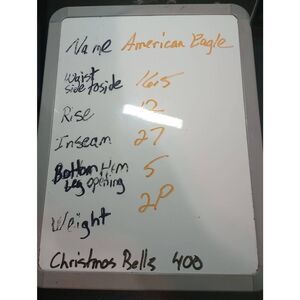 Name American Eagle
Waist side to side 16.5
Rise
Inseam 27
Bottom Hem 5
Leg opening
Weight 2P
Christmas Bells 400